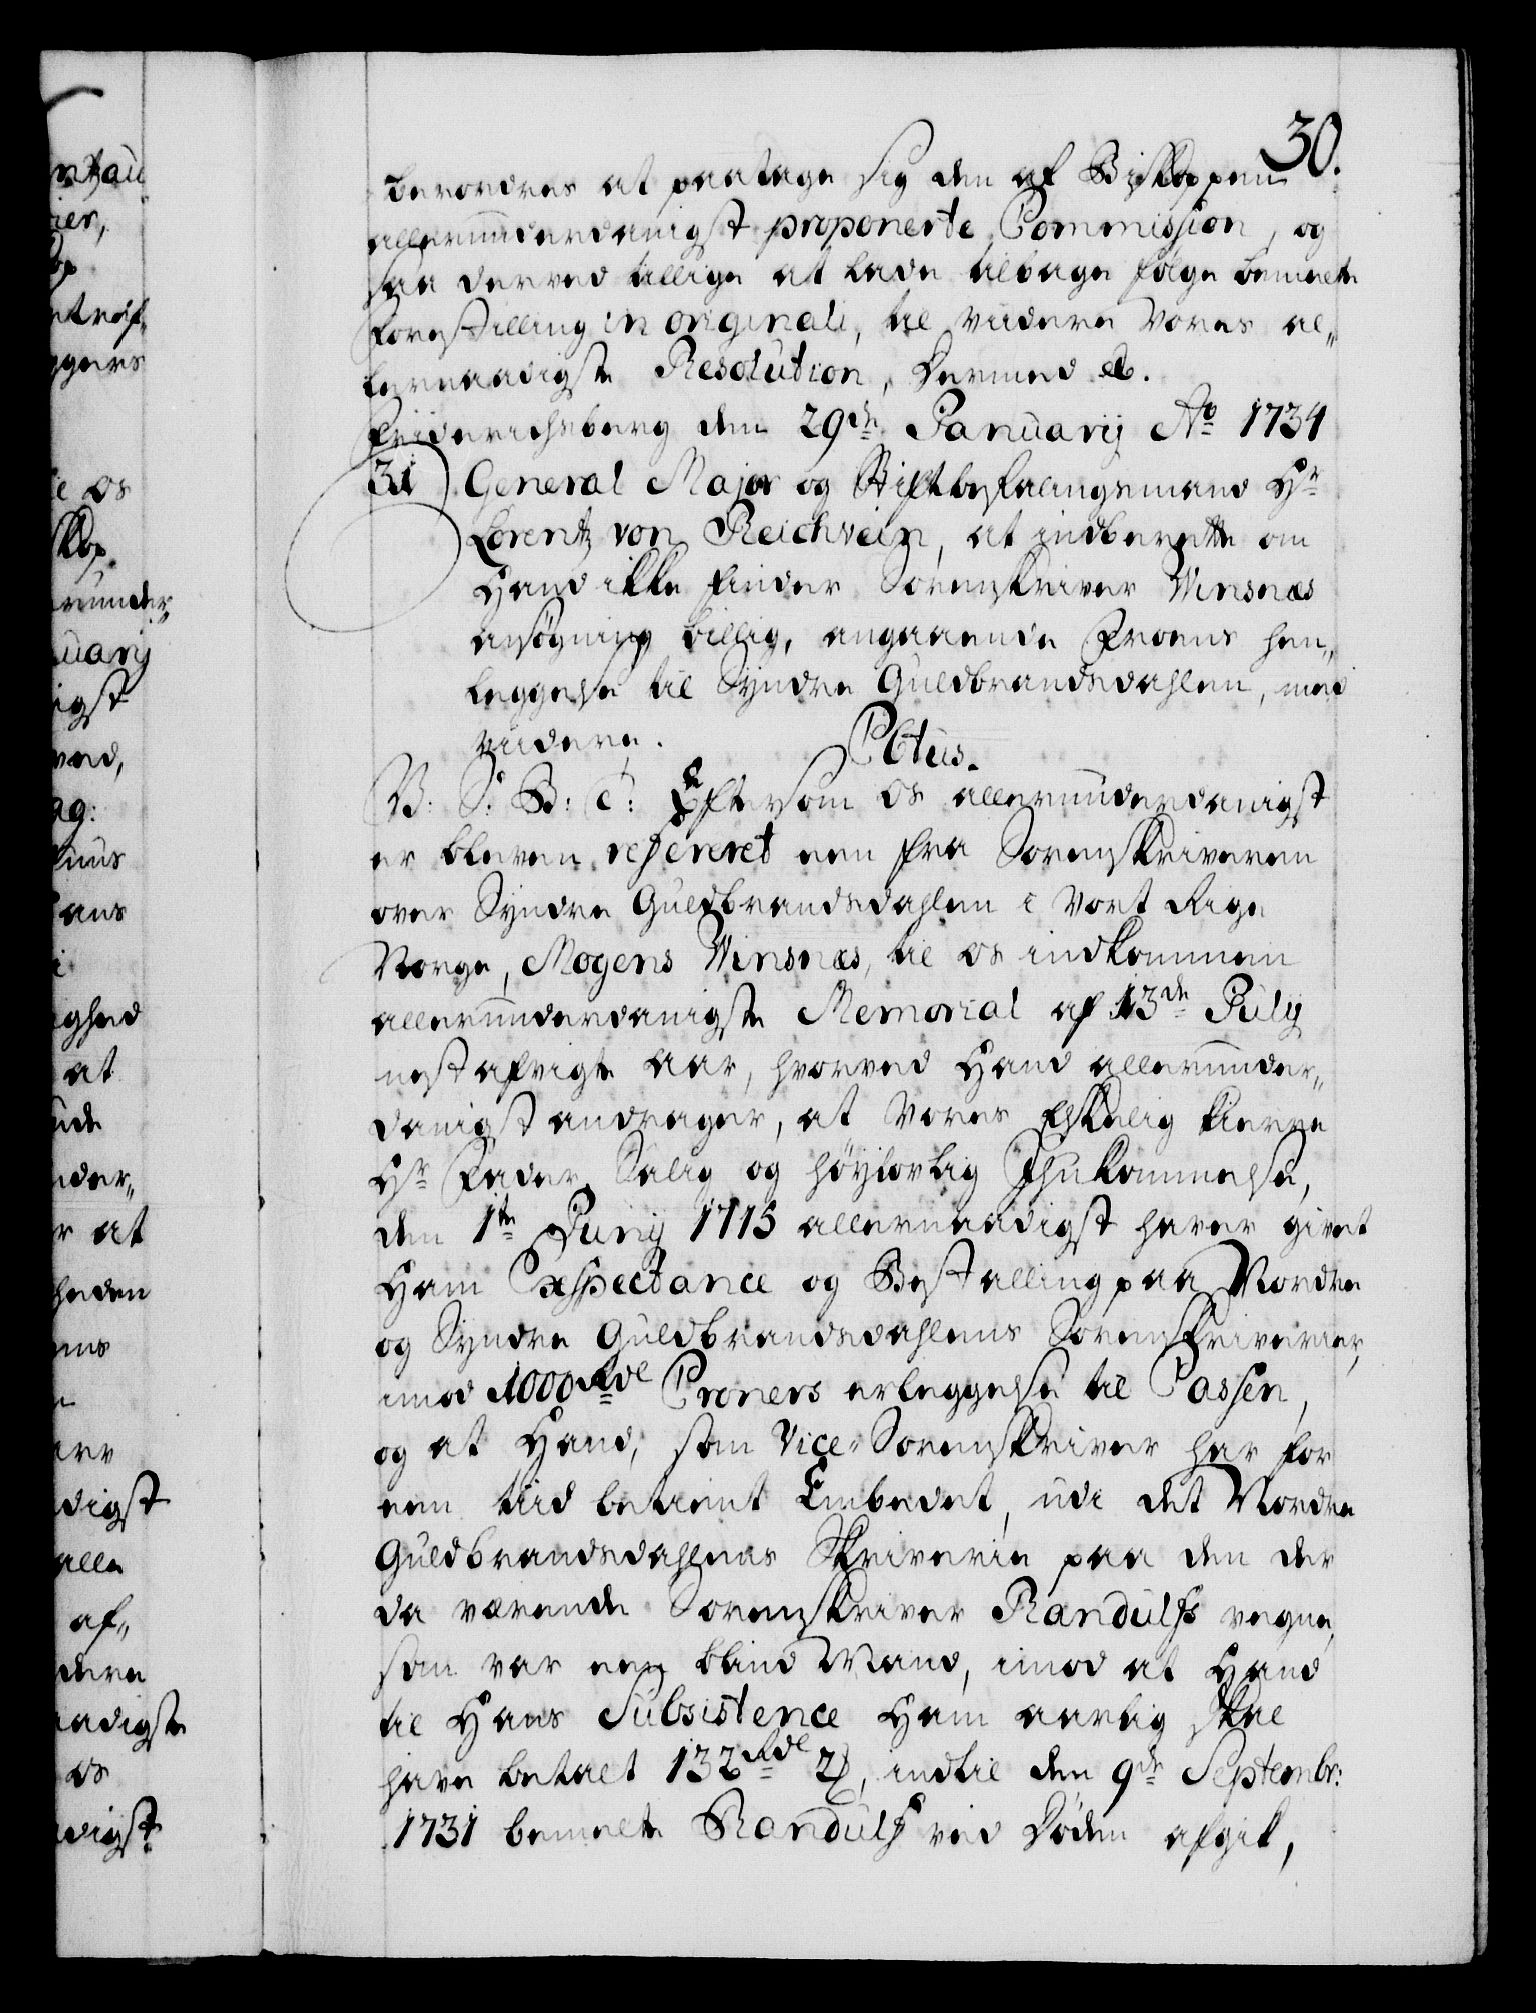 30.
berordres at paatage sig den af Biskoppen
allerunderdanigst proponerte Commission, og
saa derved tillige at lade tilbage følge bemelte
Forestilling in originali, til viidere Vores al„
lernaadigste Resolution, Dermed etc.
Friderichsberg den 29de Januarij Ao 1734
31) General Major og Stiftbefalingsmand Hr
Lorentz von Reichvein, at indberette om
Hand ikke finder Sorenskriver Winsnæs
ansøgning billig, angaaende Froens hen„
leggelse til Syndre Guldbrandsdahlen, med
viidere.
Ctus.
V: S: B: C: Eftersom os allerunderdanigst
er bleven refereret een fra Sorenskriveren
over Syndre Guldbrandsdahlen i Vort Rige
Norge, Mogens Winsnæs, til os indkommen
allerunderdanigste Memorial af 13de Julij
nestafvigte Aar, hvorved Hand allerunder„
danigst andrager, at Vores Elskelig kierre
Hr Fader Salig og høylovlig Ihukommelse,
den 1te Junij 1715 allernaadigst haver givet
Ham Exspectance og Bestalling paa Nordre
og Syndre Guldbrandsdahlens Sorenskriverier,
imod 1000 Rdl Croners erleggelse til Cassen,
og at Hand, som Vice-Sorenskriver har for
een tiid betient Embedet, udi det Nordre
Guldbrandsdahlens Skriverie paa den der
da værende Sorenskriver Randulfs vegne,
som var een blind Mand, imod at Hand
til Hans Subsistence Ham aarlig skal
have betalt 132 Rdl 2, indtil den 9de Septembr:
1731 bemelte Randulf ved Døden afgik,